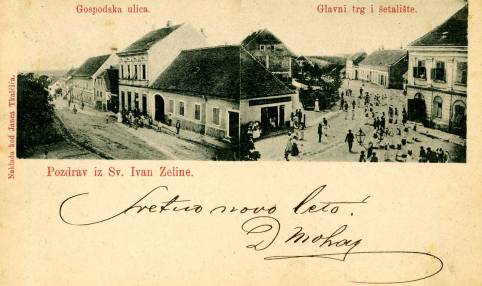 Gospodska ulica.
Glavni trg i šetalište.
Naklada kod Janea
Pozdrav iz Sv. Ivan Zeline.
Sretno novo leto!
D Mohaj